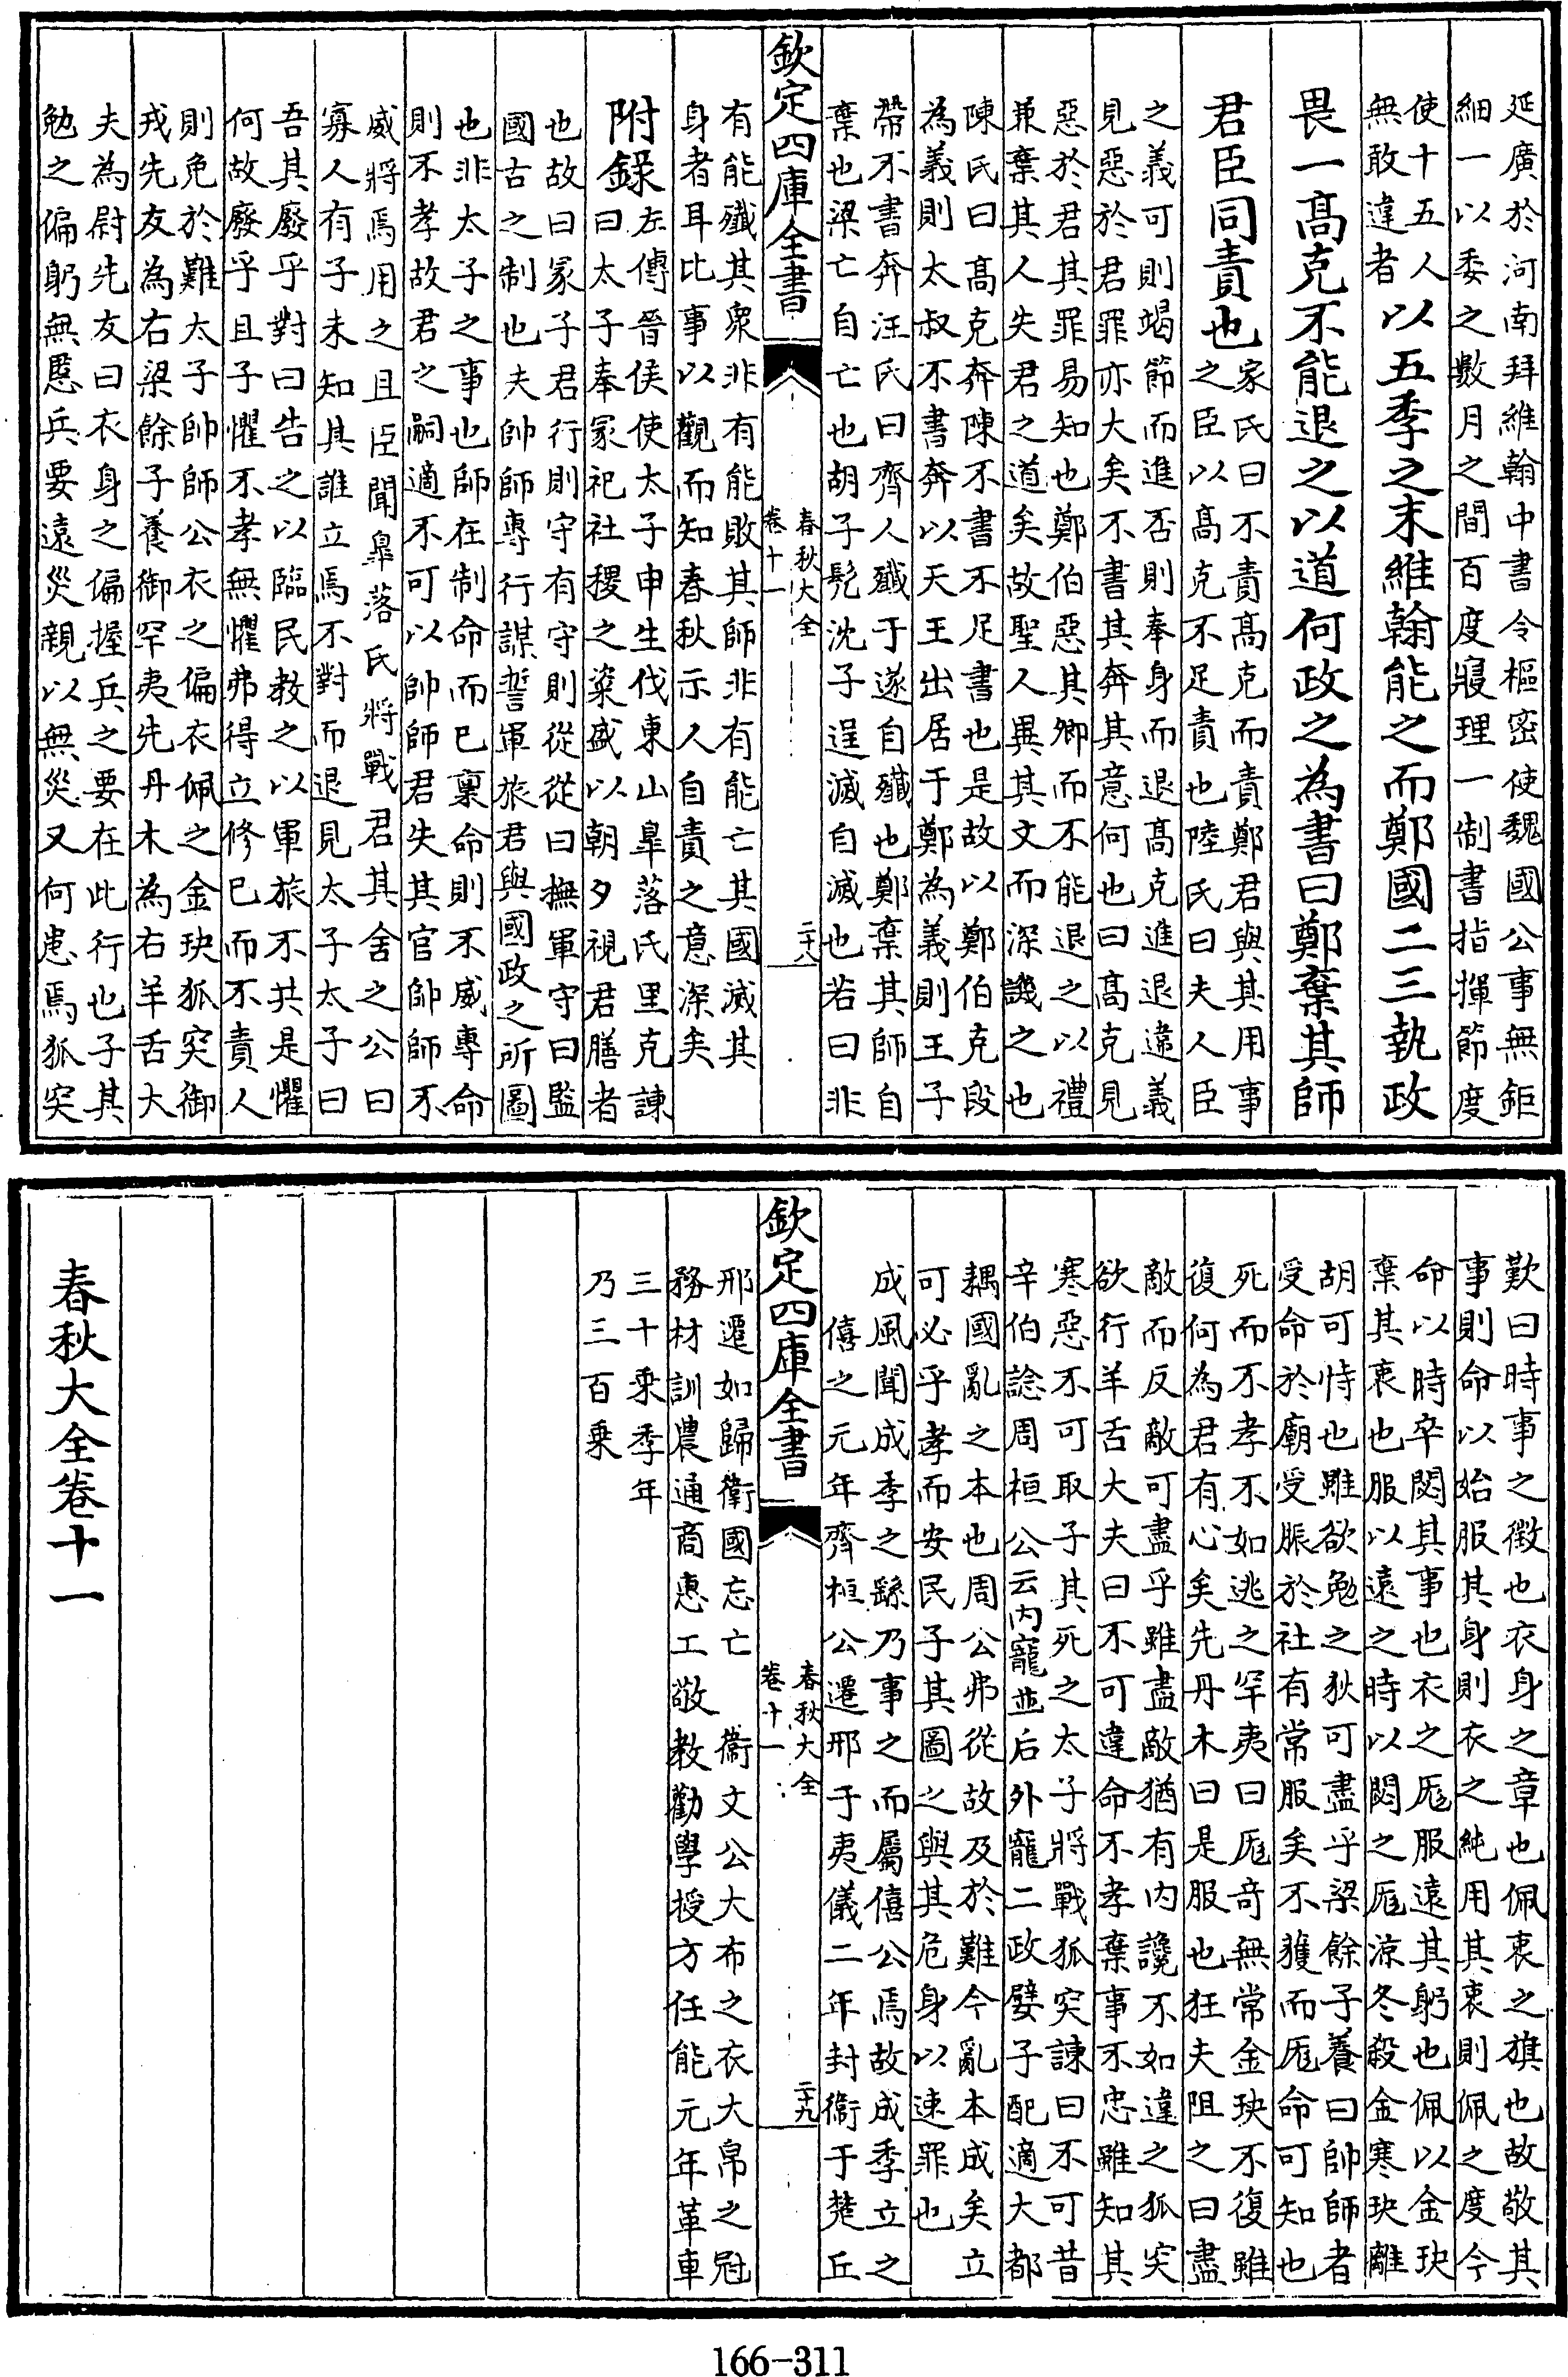 延廣於河南拜維翰中書令樞密使魏國公事無鉅
細一以委之數月之間百度寖理一制書指揮節度
使十五人
無敢違者
以五季之末維翰能之而鄭國二三執政
畏一高克不能退之以道何政之為書曰鄭棄其師
君臣同責也
家氏曰不責高克而責鄭君與其用事
之臣以高克不足責也陸氏曰夫人臣
之義可則竭節而進否則奉身而退高克進退違義
見惡於君罪亦大矣不書其奔其意何也曰高克見
惡於君其罪易知也鄭伯惡其卿而不能退之以禮
兼棄其人失君之道矣故聖人異其文而深譏之也
陳氏曰高克奔陳不書不足書也是故以鄭伯克段
為義則太叔不書奔以天王出居于鄭為義則王子
帶不書奔汪氏曰齊人殲于遂自殲也鄭棄其師自
棄也梁亡自亡也胡子髡沈子逞滅自滅也若曰非
欽定四庫全書
春秋大全
卷十一
二十八
有能殲其衆非有能敗其師非有能亡其國滅其
身者耳比事以觀而知春秋示人自責之意深矣
附錄
左傳晉侯使太子申生伐東山臯落氏里克諫
曰太子奉冢祀社稷之粢盛以朝夕視君膳者
也故曰冢子君行則守有守則從從曰撫軍守曰監
國古之制也夫帥師專行謀誓軍旅君與國政之所圖
也非太子之事也師在制命而已稟命則不威專命
則不孝故君之嗣適不可以帥師君失其官帥師不
威將焉用之且臣聞臯落氏將戰君其舍之公曰
寡人有子未知其誰立焉不對而退見太子太子曰
吾其廢乎對曰告之以臨民教之以軍旅不共是懼
何故廢乎且子懼不孝無懼弗得立修已而不責人
則免於難太子帥師公衣之偏衣佩之金玦狐突御
戎先友為右梁餘子養御罕夷先丹木為右羊舌大
夫為尉先友曰衣身之偏握兵之要在此行也子其
勉之偏躬無慝兵要遠災親以無災又何患焉狐突
歎曰時事之徵也衣身之章也佩衷之旗也故敬其
事則命以始服其身則衣之純用其衷則佩之度今
命以時卒閟其事也衣之厖服遠其躬也佩以金玦
棄其衷也服以遠之時以閟之厖涼冬殺金寒玦離
胡可恃也雖欲勉之狄可盡乎梁餘子養曰帥師者
受命於廟受脤於社有常服矣不獲而厖命可知也
死而不孝不如逃之罕夷曰厖奇無常金玦不復雖
復何為君有心矣先丹木曰是服也狂夫阻之曰盡
敵而反敵可盡乎雖盡敵猶有內讒不如違之狐突
欲行羊舌大夫曰不可違命不孝棄事不忠雖知其
寒惡不可取子其死之太子將戰狐突諫曰不可昔
辛伯諗周桓公云內寵並后外寵二政嬖子配適大都
耦國亂之本也周公弗從故及於難今亂本成矣立
可必乎孝而安民子其圖之與其危身以速罪也
成風聞成季之繇乃事之而屬僖公焉故成季立之
僖之元年齊桓公遷邢于夷儀二年封衛于楚丘
欽定四庫全書
春秋大全
卷十一
二十九
邢遷如歸衛國忘亡　衛文公大布之衣大帛之冠
務材訓農通商惠工敬教勸學授方任能元年革車
三十乘季年
乃三百乘
春秋大全卷十一
166-311